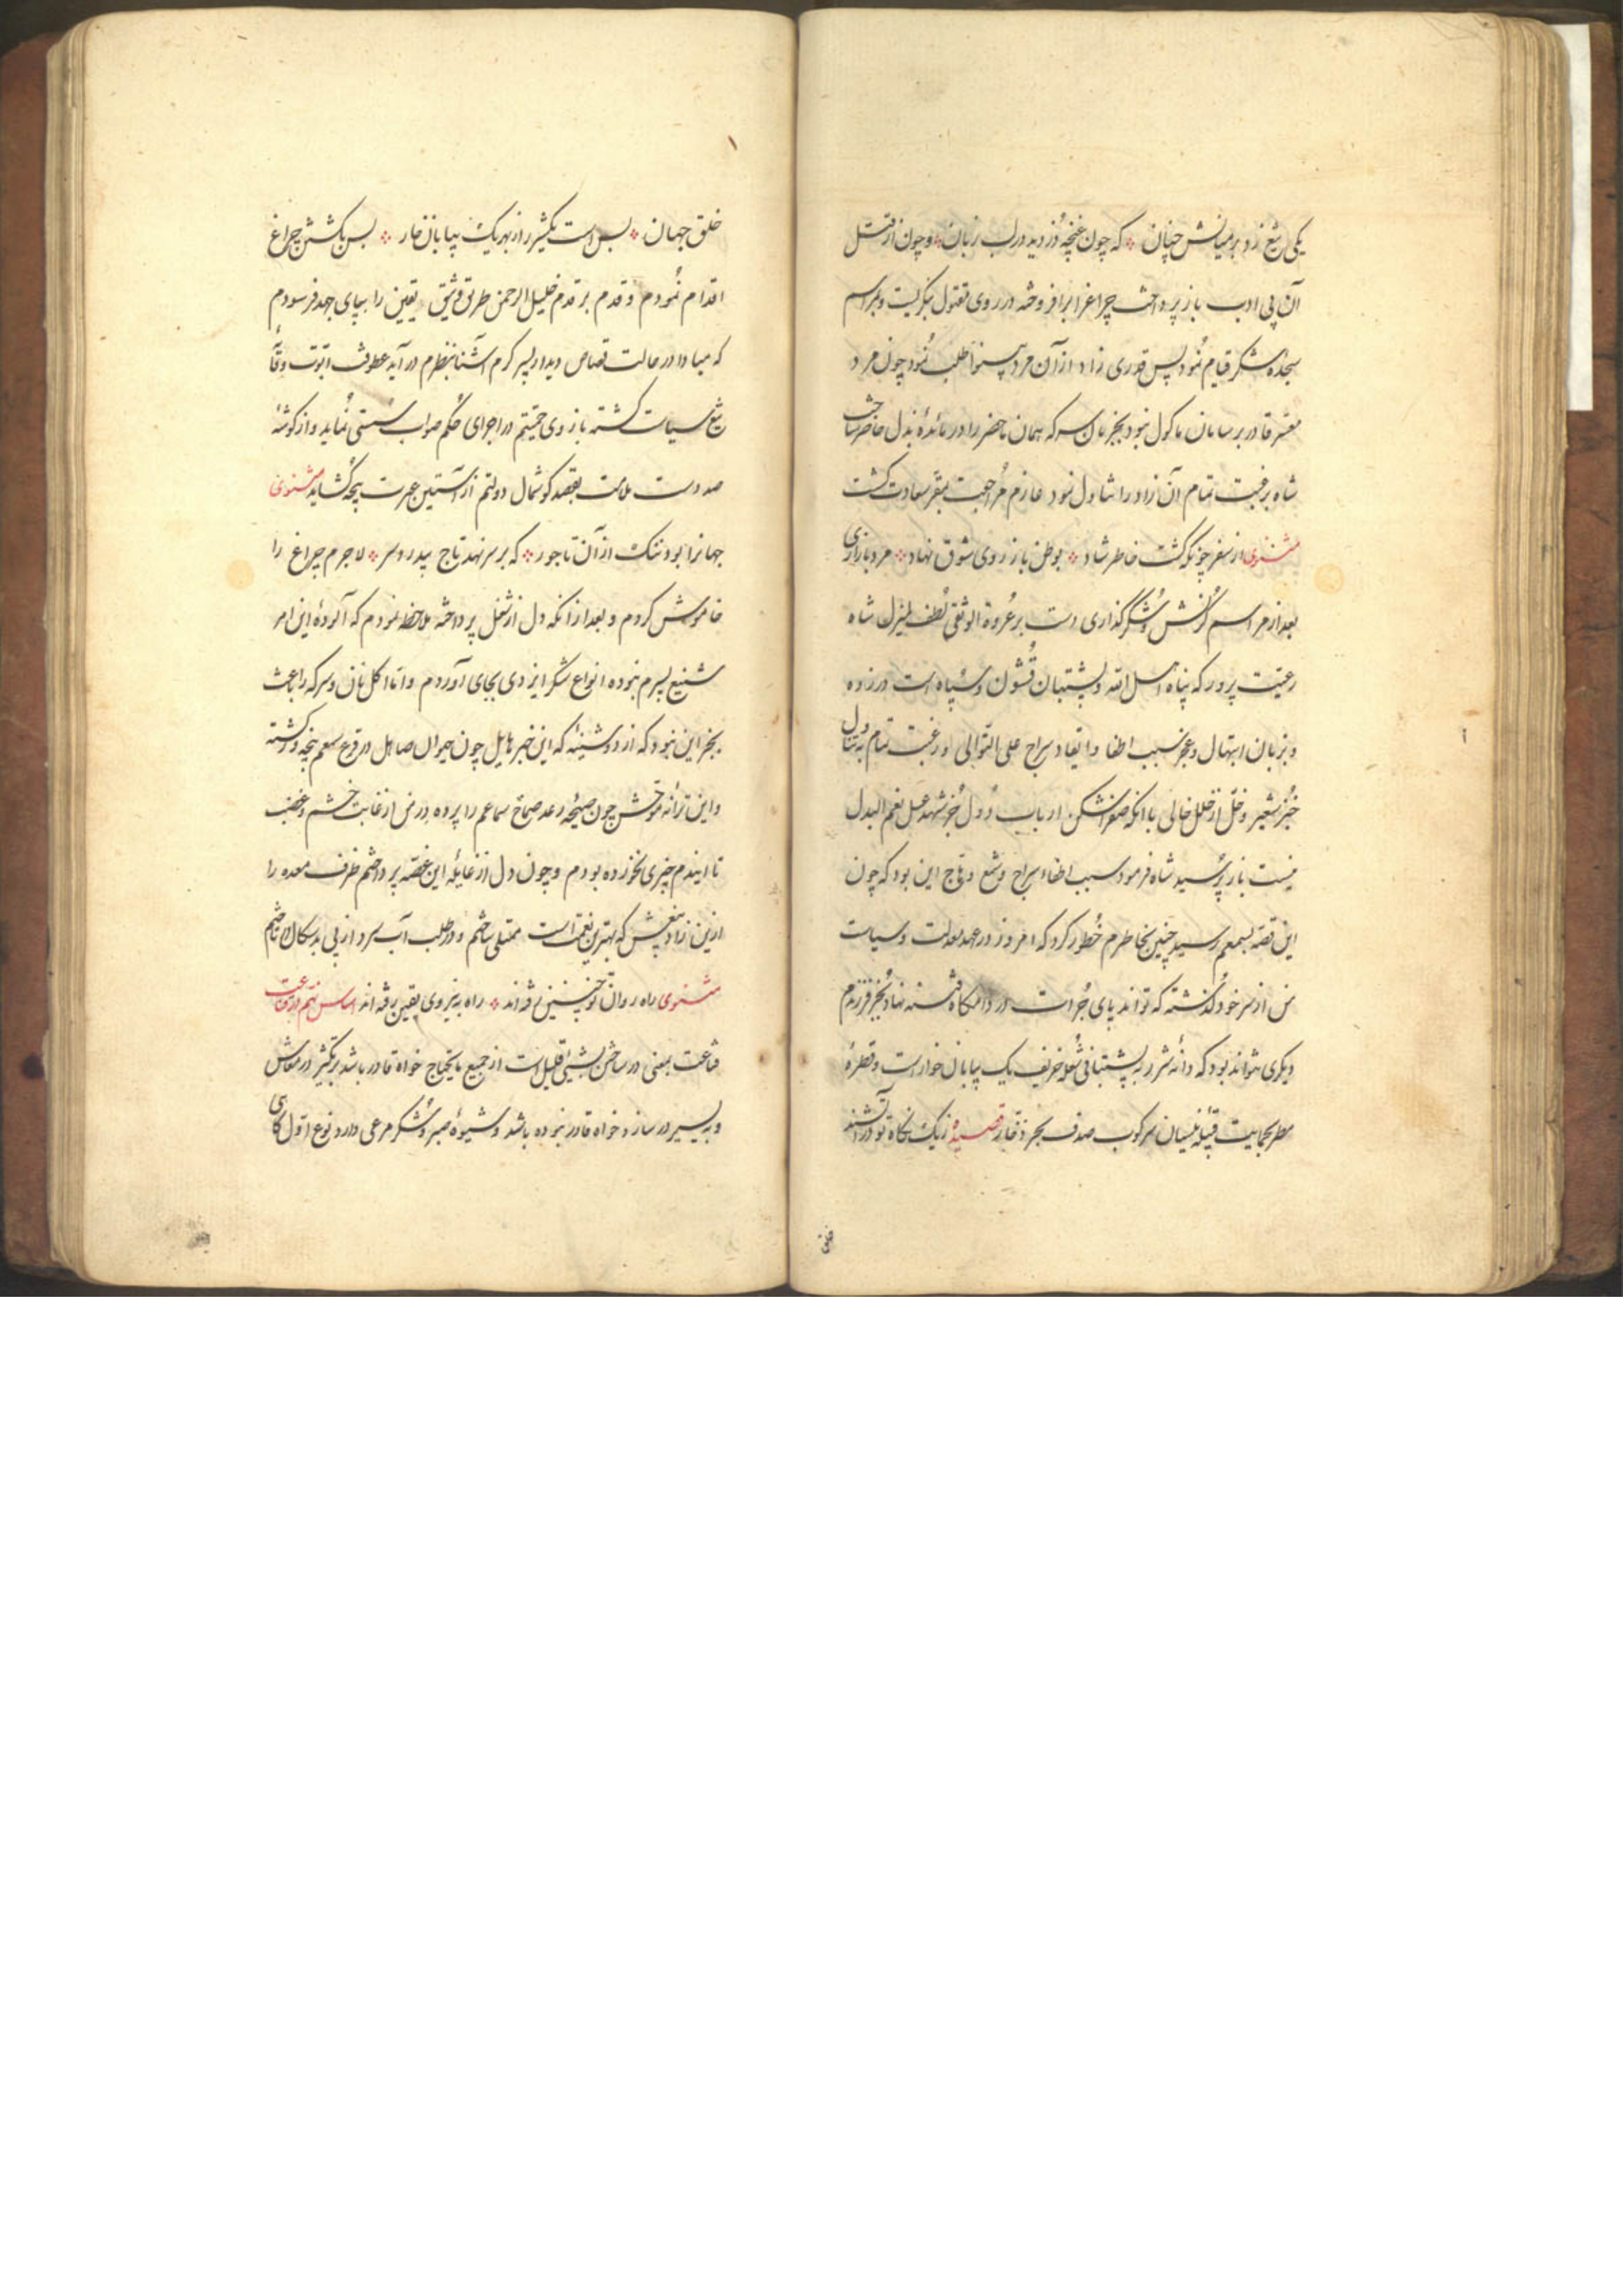 یکی تیغ زد بر میانش چنان که چون غنچه دزدید در لب زبان و چون از قتل
آن بی ادب باز پرداخت چراغ را برافروخته در روی مقتول نگریست و بمراسم
سجده شکر قیام نمود پس قدری زاد از آن مرد پسر طلب نمود چون مرد
مفتقر قادر بر سامان ماکول نبود بجز نان و سرکه همان ماحضر را در مائدهٔ بذل حاضر ساخت
شاه برغبت تمام آن زاد را تناول نمود عازم مراجعت بمقر سعادت گشت
مثنوی از سفر چونکه گشت خاطر شاد بوطن باز روی شوق نهاد مرد بازاری
بعد از مراسم کرنش و شکرگذاری دست بر عروة الوثقی لطف لمیزل شاه
رعیت پرور که پناه اهل الله و پشتیبان قشون و سپاه است در زده
و بزبان ابتهال و عجز سبب اطفا و ایقاد سراج علی التوالی و رغبت تمام به تناول
خبز شعیر و خل از خلل خالی با آنکه صفراشکن ارباب دول بجز شهد عسل نعم البدل
نیست باز پرسید شاه فرمود سبب اطفاء سراج و شمع وهاج این بود که چون
این قصه بسمعم رسید چنین بخاطرم خطور کرد که امروز در عهد معدلت و سیاست
من از سر خود گذشته که تواند پای جرأت در دامگاه فتنه نهاد بجز فرزندم
دیگری نتواند بود که دانهٔ شرر به پشتیبانی شعله حریف یک بیابان خار است و قطرهٔ
مطر بحمایت قبیله نیسان سرکوب صدف بحر ذخار قصیده ز یک نگاه تو در آتشند
خلق
خلق جهان بس است یکشرر از بهر یک بیابان خار پس بکشتن چراغ
اقدام نمودم و قدم بر قدم خلیل الرحمن طریق وثیق یقین را بپای جهد فرسودم
که مبادا در حالت قصاص دیدار پسر گرم آشنا بنظرم در آید عطوفت ابوت وقت
تیغ سیاست گشته بازوی حمیتم در اجرای حکم صواب سستی نماید و از گوشهٔ
صد دست ملامت بقصد گوشمال دولتم از آستین عبرت پنجه گشاید مثنوی
جهانرا بود ننگ از آن تاجور که بر سر نهد تاج بیدردسر لاجرم چراغ را
خاموش کردم و بعد از آنکه دل از شغل پرداخته ملاحظه نمودم که آلودهٔ این امر
شنیع پسرم نبوده انواع شکر ایزدی بجای آوردم و اما اکل نان و سرکه را باعث
بجز این نبود که از دوشینه که این خبر هایل چون جوال صاهل در قرع سمعم پنجه در گشته
و این ترانه موحش چون صیحه رعد صماخ سماعم را پرده در من از غایت خشم و غضب
تا ایندم چیزی نخورده بودم و چون دل از غایله این غصه پرداختم ظرف معده را
ازین زاد بیغش که بهترین نعمتها است ممتلی ساختم و در طلب آب سرد از پی بدسگالان تاختم
مثنوی راه روان تو چنین رفته اند راه به نیروی یقین رفته اند اساس نهم در قناعت
قناعت بمعنی در ساختن بشیئی قلیل است از جمیع مایحتاج خواه قادر باشد بر تکثیر در معاش
و به یسیر در سازد خواه قادر نبوده باشد و شیوهٔ صبر و شکر مرعی دارد نوع اول کاسی